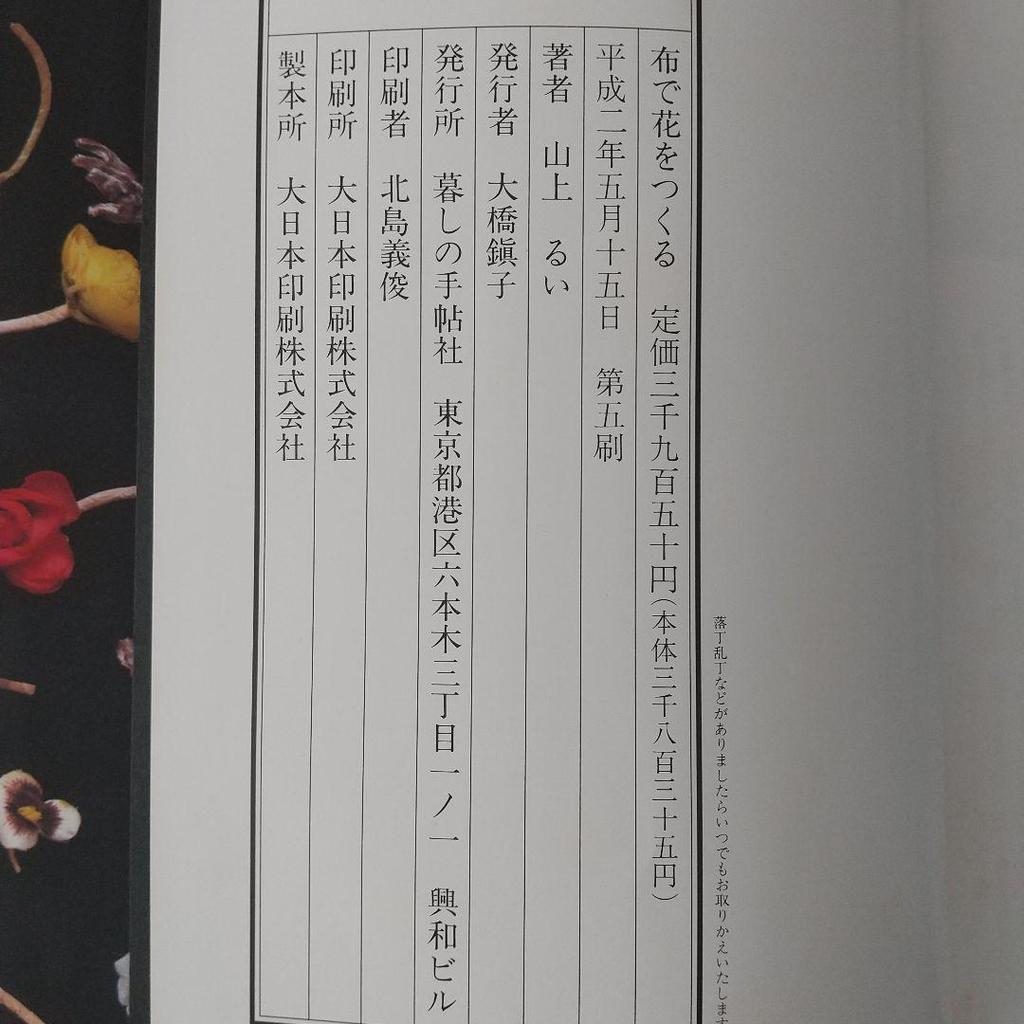 落丁乱丁などがありましたらいつでもお取りかえいたします
布で花をつくる　定価三千九百五十円（本体三千八百三十五円）
平成二年五月十五日　第五刷
著者　山上　るい
発行者　大橋鎭子
発行所　暮しの手帖社　東京都港区六本木三丁目一ノ一　興和ビル
印刷者　北島義俊
印刷所　大日本印刷株式会社
製本所　大日本印刷株式会社